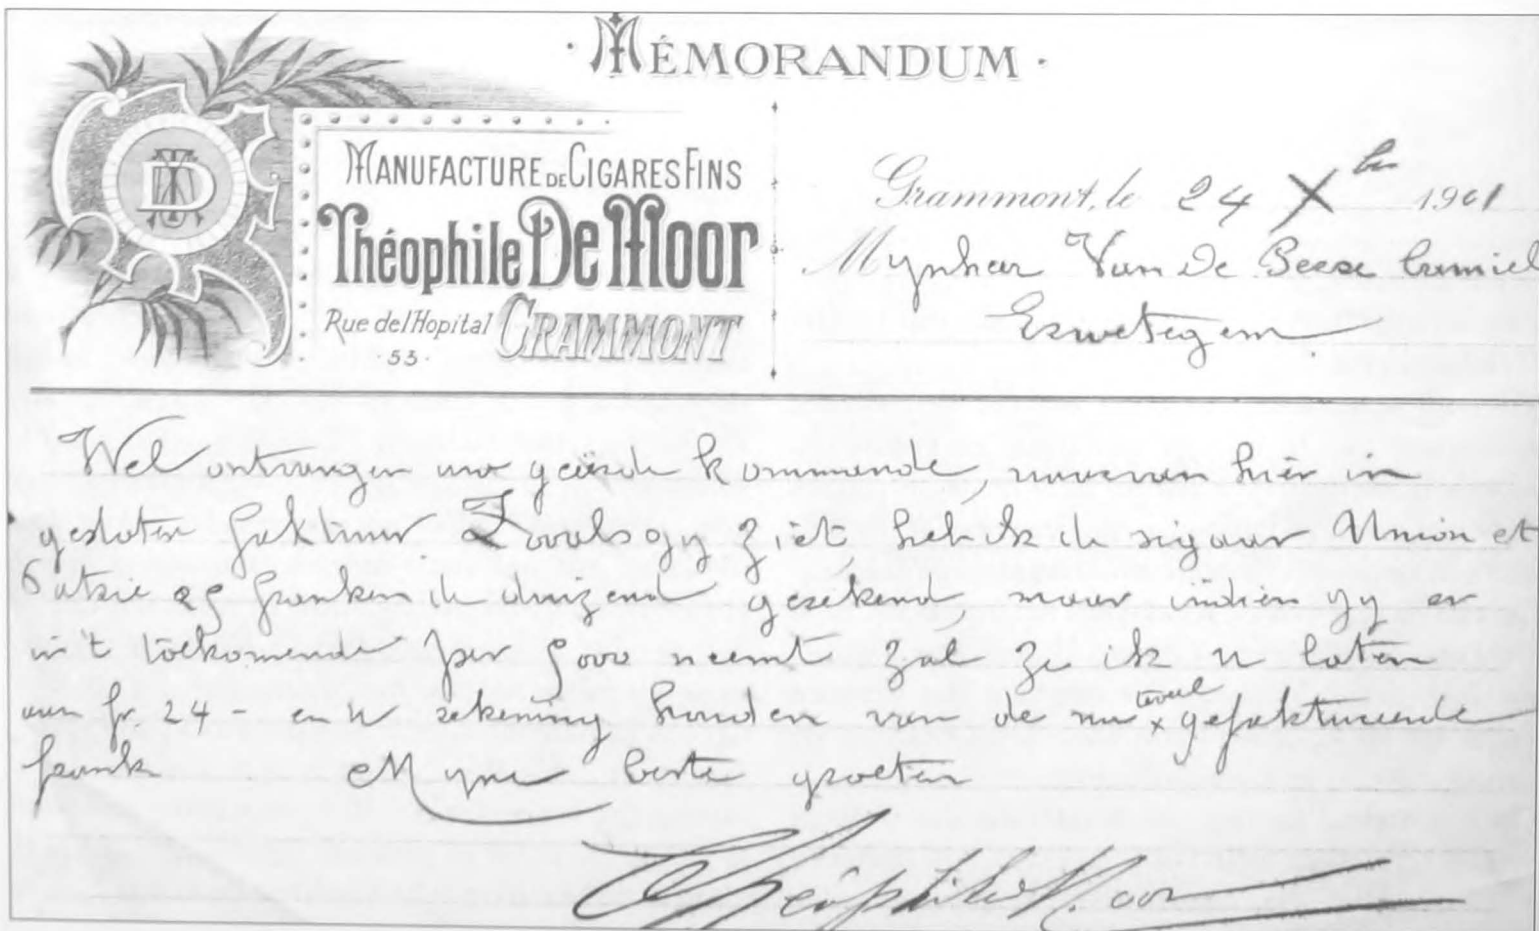 MÉMORANDUM
DTM
MANUFACTURE DE CIGARES FINS
Théophile De Moor
Rue de l'Hopital GRAMMONT
53
Grammont, le 24 Xber 1901
Mynheer Van De Camiel
Erwetegem
Wel ontvangen uw geëerde kommande, nevens hier in
gesloten faktuur. Zooals gy ziet, heb ik de sigaar Union et
Patrie 25 franken de duizend gerekend, maar indien gy er
in't toekomende per 5000 neemt zal ze ik u laten
aan fr 24 - en U rekening houden van de nu teveel x gefaktureerde
frank Myne beste groeten
Théophile De Moor